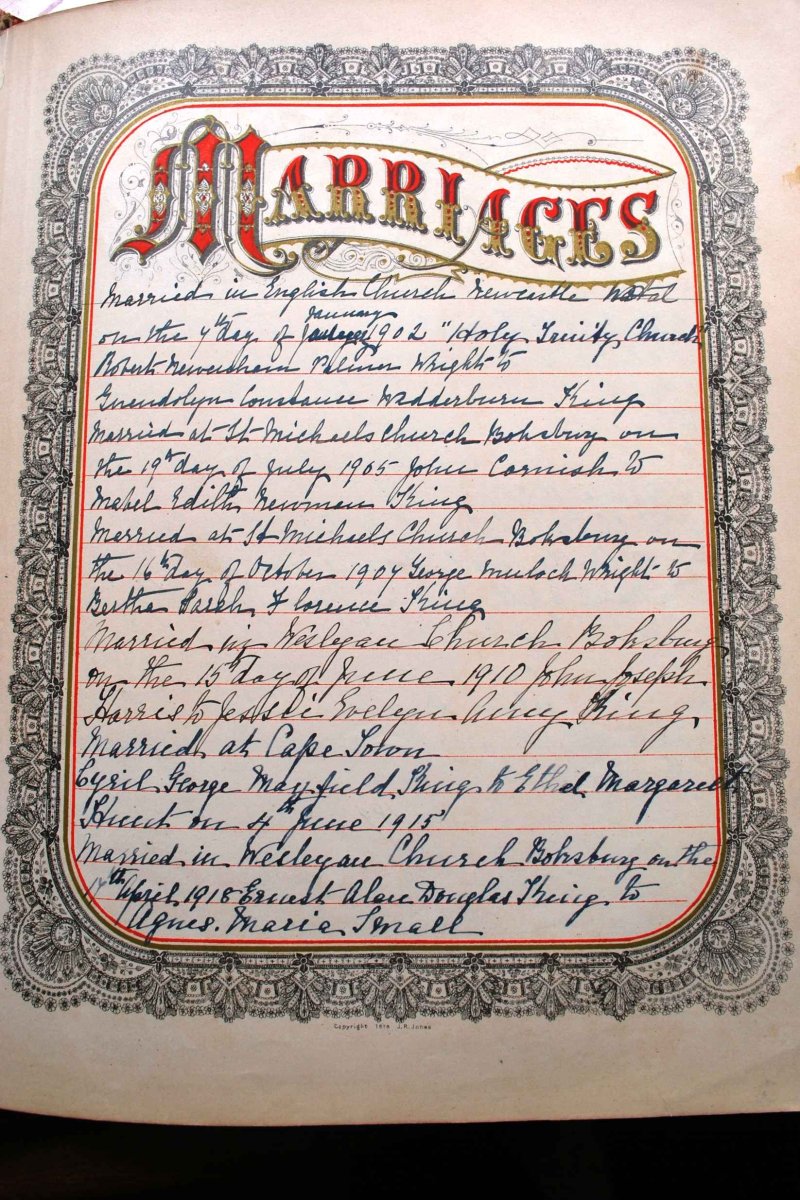 MARRIAGES
Married in English Church Newcastle Natal
January
on the 7th day of 1902 "Holy Trinity Church"
Robert Newenham Palmer Wright to
Gwendolyn Constance Wedderburn King
Married at St Michaels Church Boksburg on
the 19th day of July 1905 John Cornish to
Mabel Edith Newman King
Married at St Michaels Church Boksburg on
the 16th day of October 1907 George Mulock Wright to
Bertha Sarah Florence King
Married in Wesleyan Church Boksburg
on the 15th day of June 1910 John Joseph
Harris to Jessie Evelyn Amy King
Married at Cape Town
Cyril George Mayfield King to Ethel Margaret
Hunt on 4th June 1915
Married in Wesleyan Church Boksburg on the
April 1918 Ernest Alan Douglas King to
Agnes. Maria Small
Copyright 1878 J.R. Jones